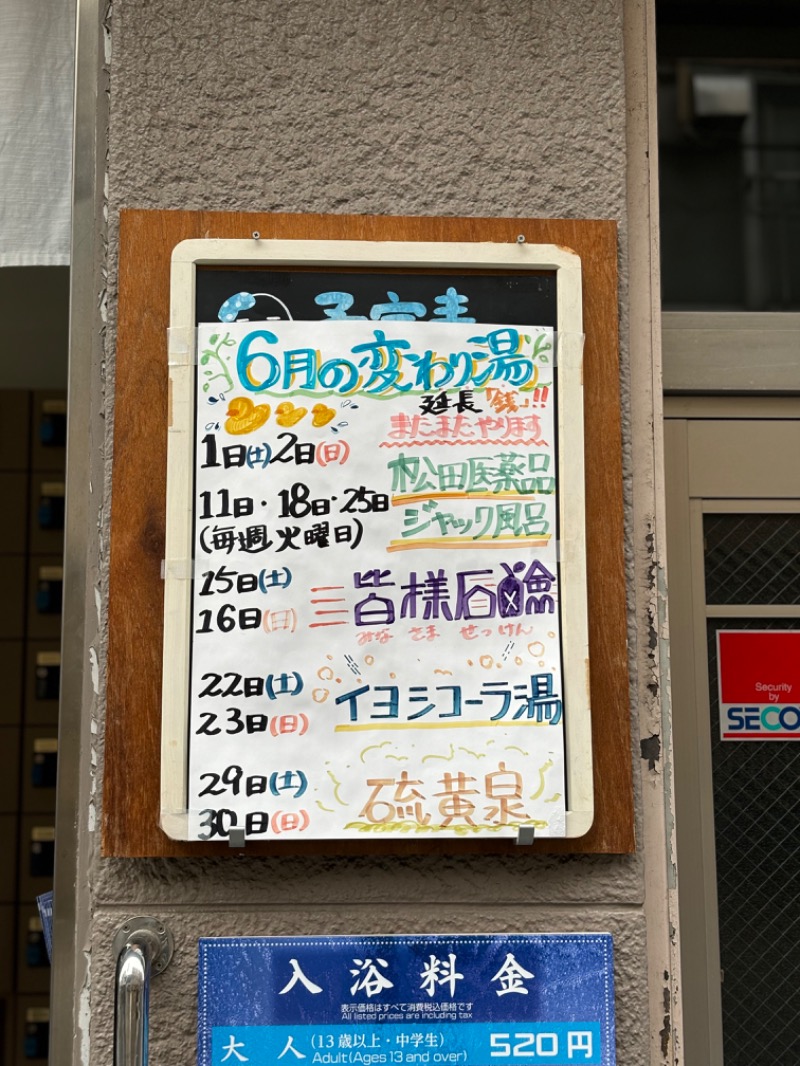 予定表
6月の変わり湯
延長「銭」!!
またまたやります
1日(土)2日(日)
松田医薬品
11日・18日・25日
ジャック風呂
(毎週火曜日)
15日(土)
16日(日)
皆様石鹸
みな さま せっけん
22日(土)
23日(日)
イヨシコーラ湯
29日(土)
30日(日)
硫黄泉
Security
by
SECO
入浴料金
表示価格はすべて消費税込価格です
All listed prices are including tax
大人(13歳以上・中学生)
Adult(Ages 13 and over)
520円